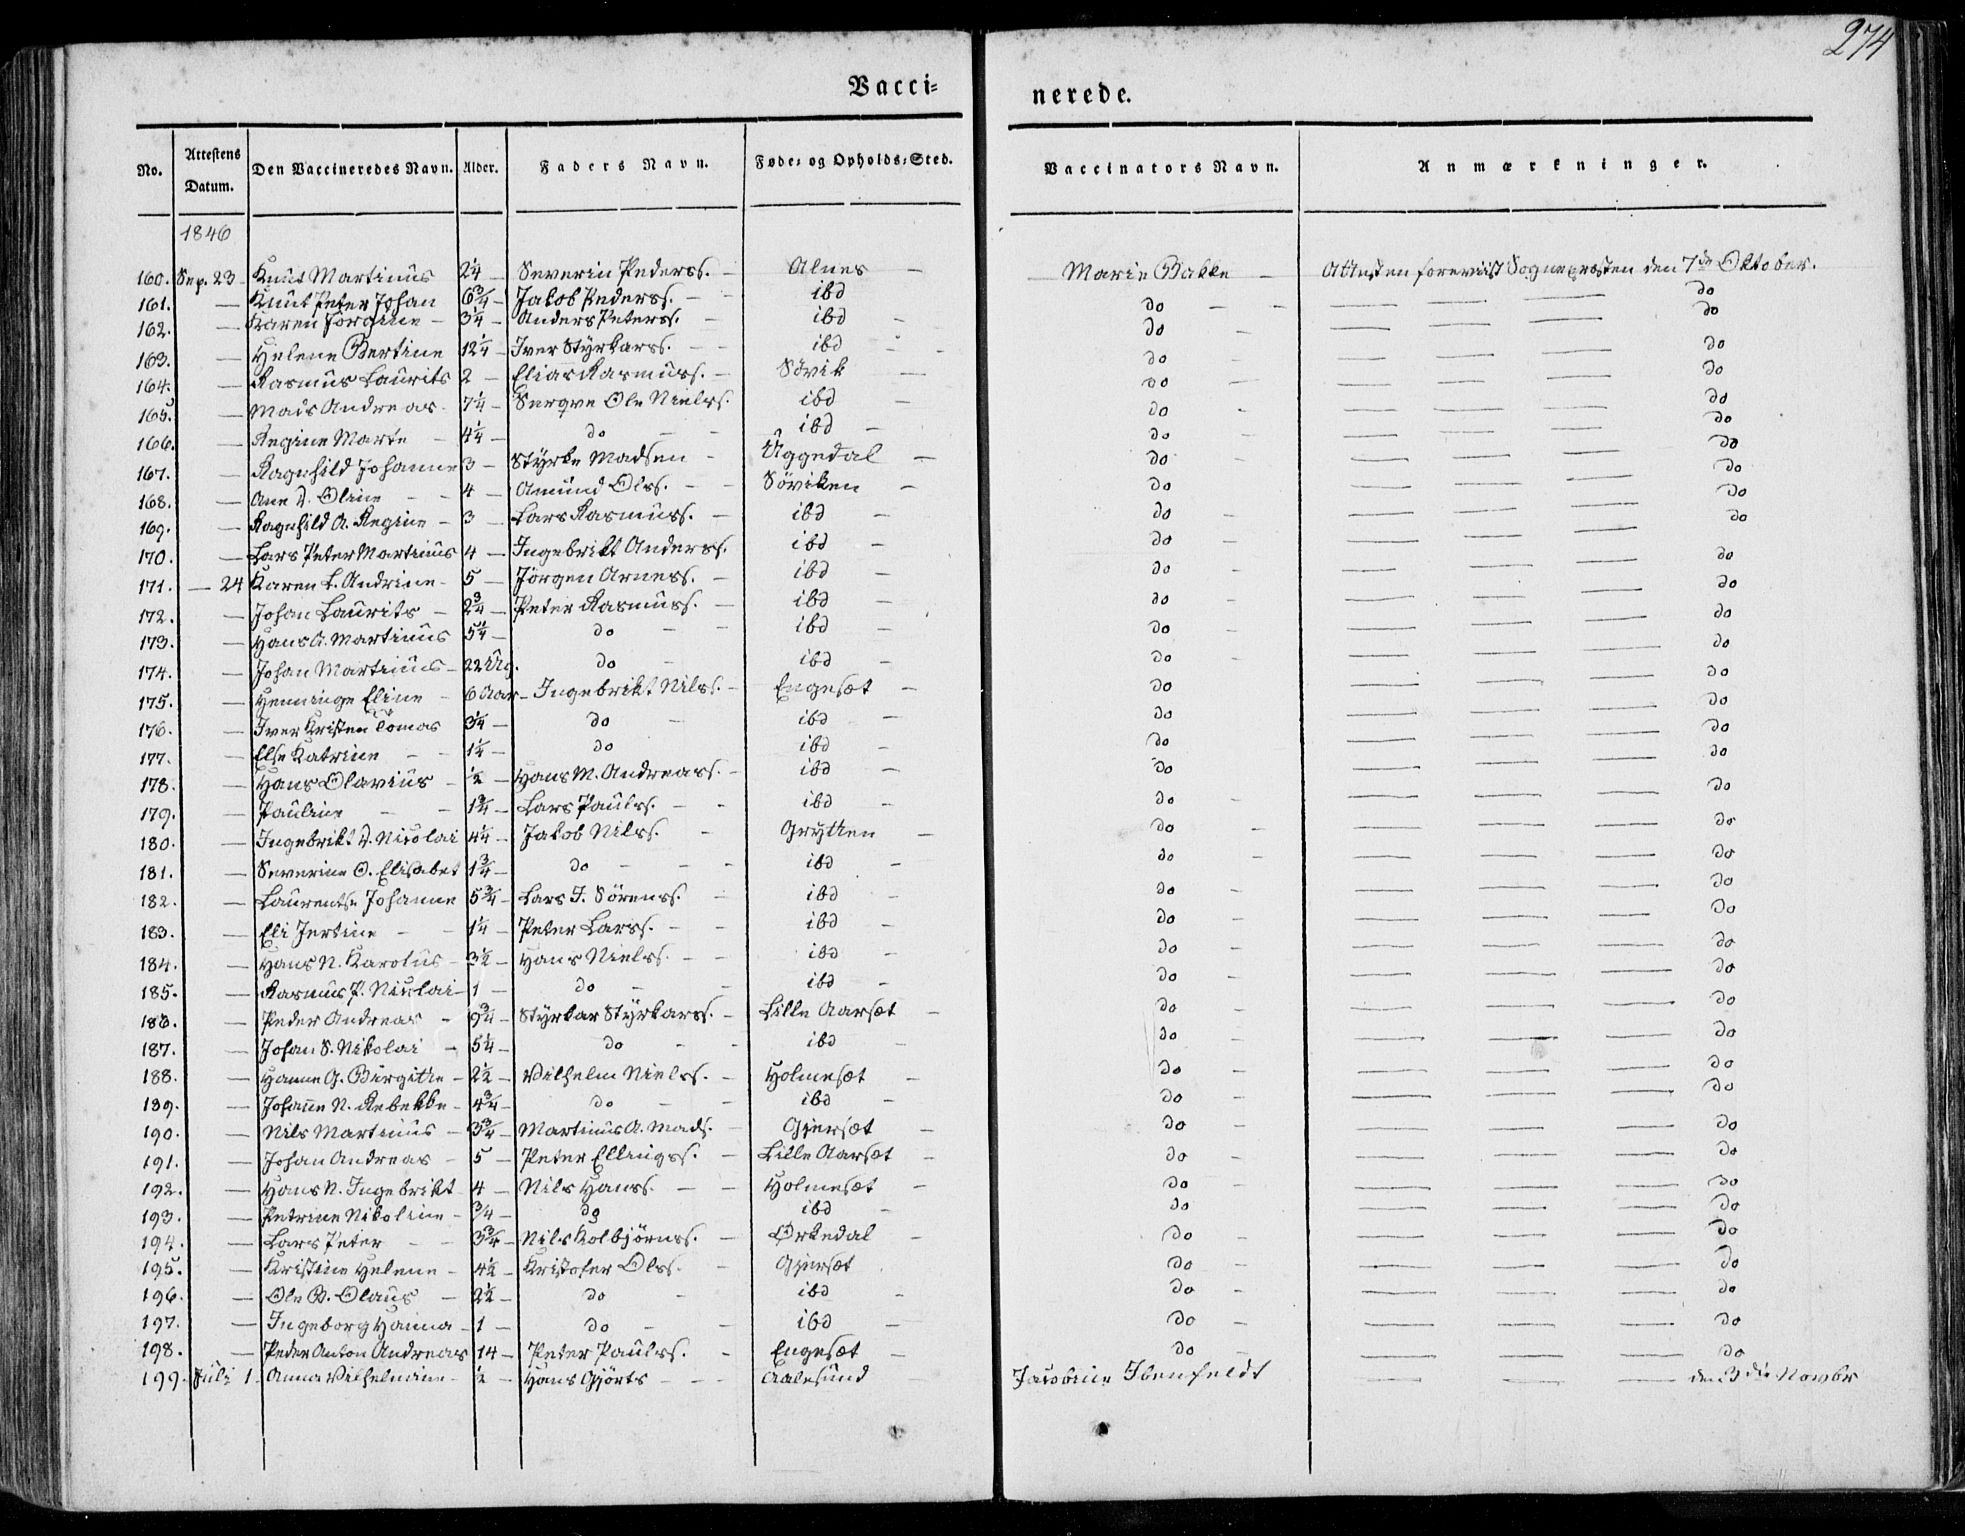 274
Vacci- nerede.
No. Attestens Datum. Den Vaccineredes Navn. Alder. Faders Navn. Føde- og Opholds-Sted. Vaccinators Navn. Anmærkninger.
1846
160. Sep. 23 Knut Martinus 2 1/4 — Severin Peders. — Alnes — Marie Bakke — Attesten foreviist Sognepresten den 7de Oktober.
161. — Knut Peter Johan 6 3/4 — Jakob Peders. — ibd do — — — — — do
162. — Karen Jørgine — 3 1/4 — Anders Peters. — ibd — do — — — — do
163. — Helene Bertine 12 1/4 — Iver Styrkars. — ibd — do — — — do
164. — Rasmus Laurits 2 — Elias Rasmuss. — Søvik — do — — — — do
165. — Mads Andreas 7 1/4 — Ole Niels. ibd — do — — — — do
166. — Regine Marte — 4 1/4 — do — — ibd — do — — — — do
167. — Ragnhild Johanne 3 — Styrke Madsen — Uggedal — do — — — — do
168. — Ane Oline — 4 — Amund Ols. — Søviken — do — — — do
169. — Ragnhild A. Regine — 3 — Lars Rasmuss. — ibd — do — — — — do
170. — Lars Peter Martinus 4 — Ingebrikt Anders. ibd — do — — — — do
171. — 24 Karen L. Andrine — 5 — Jørgen Arness. — ibd — do — — — — do
172. — Johan Laurits — 2 3/4 — Peter Rasmuss. — ibd — do — — — — do
173. — Hans A. Martinus 5 1/4 — do — — ibd — do — — — — do
174. — Johan Martinus — 22 Ug. do — ibd — do — — — — do
175. — Henninge Eline — 6 Aar — Ingebrikt Nils. — Engesæt — do — — — do
176. — Iver Kristen Tomas 3 1/4 — do — ibd — do — — — do
177. — Else Katrine — 1 1/4 — do ibd — do — — — do
178. — Hans Olavius — 1/2 — Hans M. Andreass. — ibd — do — — — do
179. — Pauline — 1 3/4 — Lars Pauls. — — ibd — do — — — — do
180. — Ingebrikt Nicolai 4 1/4 — Jakob Nils. — Grytten — do — — — — do
181. — Severine O. Elisabet 1 3/4 — do — — — ibd — do — — — — do
182. — Laurentse Johanne 5 3/4 — Lars J. Sørens. — ibd — do — — — — do
183. — Eli Jertine — 1 1/4 — Peter Lars. — — ibd — do — — — — do
184. — Hans N. Karolus — 3 1/2 — Hans Niels. — — ibd — do — — — — do
185. — Rasmus P. Nicolai — 1 — do — — ibd — do — — — — do
186. — Peder Andreas — 9 3/4 — Styrkar Styrkars. — Lille Aarsæt — do — — — — do
187. — Johan S. Nikolai — 5 1/4 — do — — ibd — do — — — — do
188. — Hanne G. Birgithe — 2 1/2 — Vilhelm Niels. — Holmesæt — do — — — — do
189. — Johanne N. Rebekke — 4 3/4 — do — — ibd — do — — — — do
190. — Nils Martinus — 3 3/4 — Martinus A. Mads. — Gjersæt — do — — — — do
191. — Johan Andreas — 5 — Peter Ellings. — Lille Aarsæt — do — — — — do
192. — Hans N. Ingebrikt 4 — Nils Hans. — — Holmesæt — do — — — — do
193. — Petrine Nikoline — 3/4 — do ibd — do — — — do
194. — Lars Peter — — 3 3/4 — Nils Kolbjørns. — Ørkedal — do — — — — do
195. — Kristine Helene — 4 1/2 — Kristofer Ols. — Gjersæt do — — — — do
196. — Ole B. Olaus — 2 1/2 — do — ibd — do — — — — do
197. — Ingeborg Hanna — 1 — do — — ibd — do — — — — do
198. — Peder Anton Andreas 14 — Peter Pauls. — Engesæt — do — — — — do
199. Juli 1. Anna Vilhelmine — 1/2 — Hans Gjørts — — Aalesund Jacobine Ibenfeldt — — — den 3die Novbr